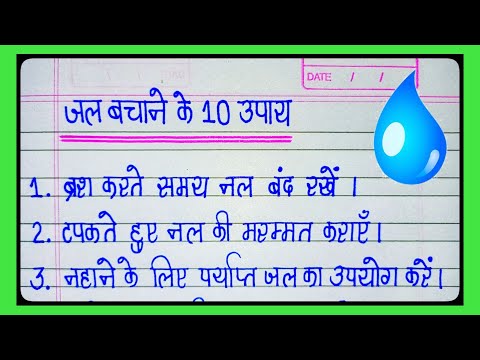 DATE / /
जल बचाने के 10 उपाय
1. ब्रश करते समय नल बंद रखें ।
2. टपकते हुए नल की मरम्मत कराएँ ।
3. नहाने के लिए पर्याप्त जल का उपयोग करें ।